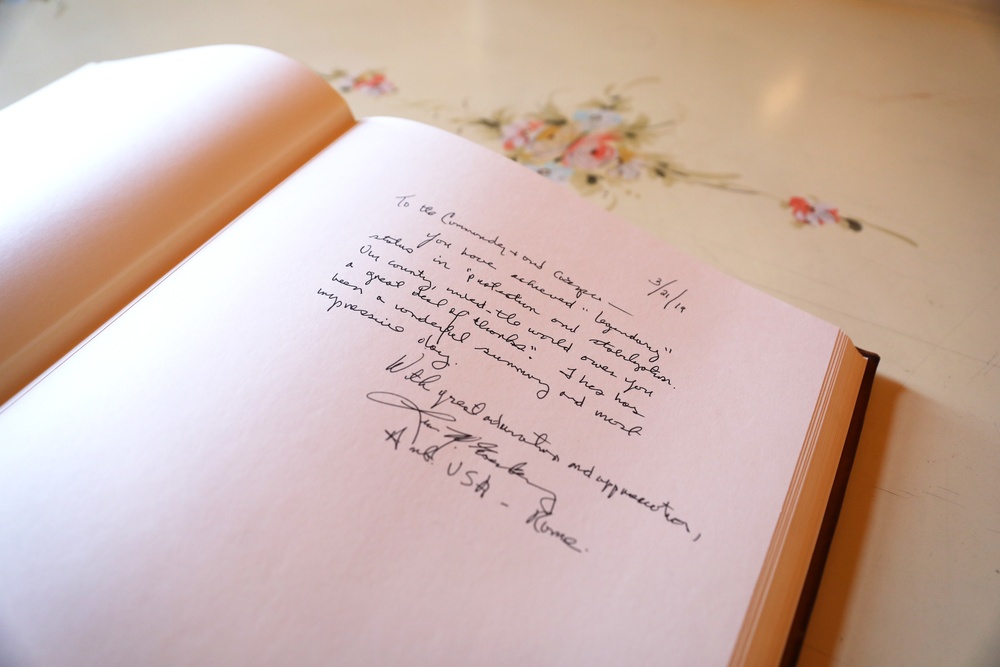 3/21/19
To the Commander and
You have achieved "legendary"
status in "protection and stabilization.
Our country, indeed the world owes you
a great deal of thanks". This has
been a wonderful summing and most
impressive day.
With great admiration and appreciation,
Amb. USA - Rome.